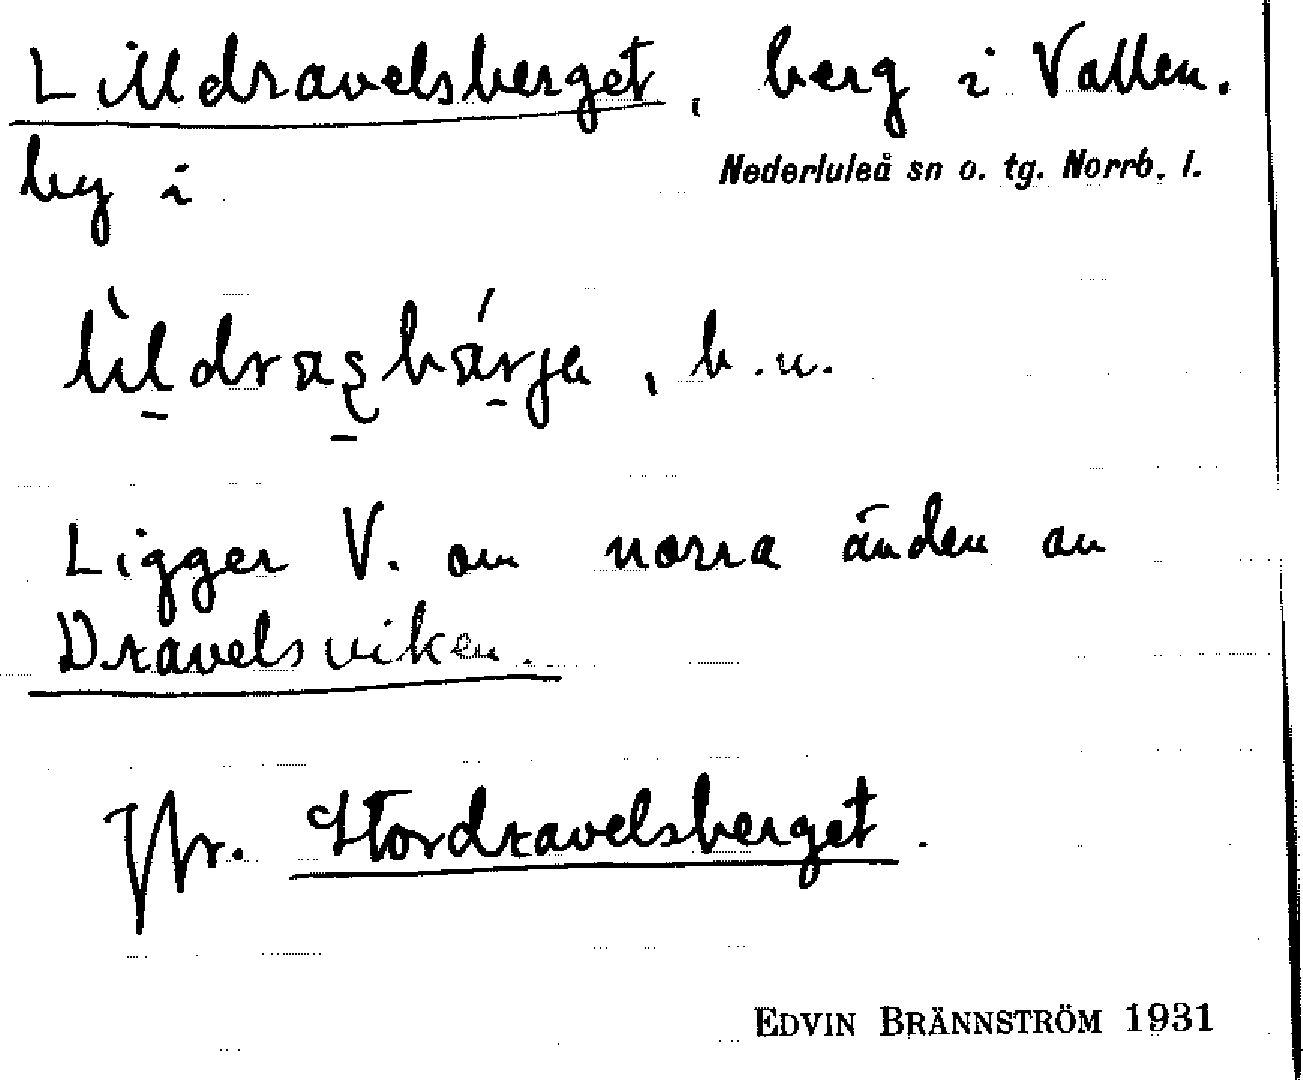 Lilldravelsberget, berg i Vallen.
by i Nederluleå sn o. tg. Norrb. l.
b.u.
Ligger V. om norra änden av
Dravelsviken.
Jfr. Stordravelsberget.
EDVIN BRÄNNSTRÖM 1931